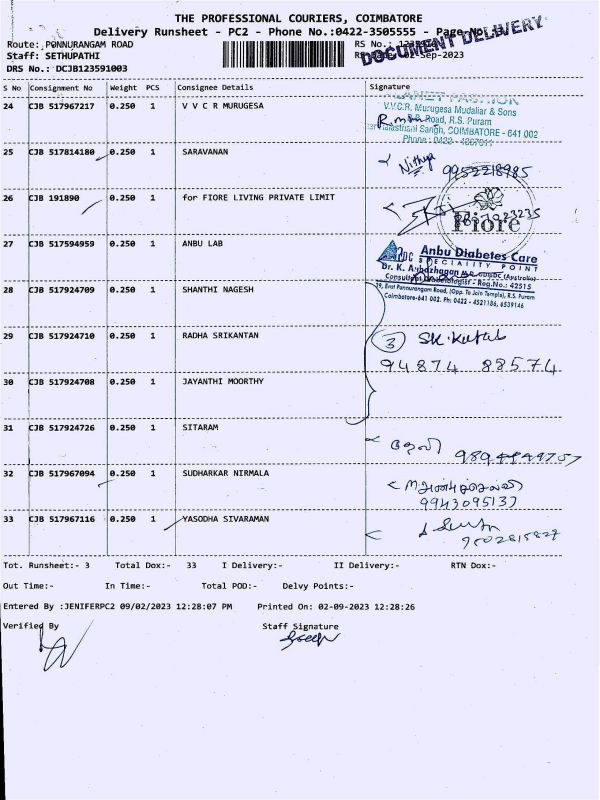 THE PROFESSIONAL COURIERS, COIMBATORE
Delivery Runsheet - PC2 - Phone No.:0422-3505555 - Page No.: 3
DOCUMENT DELIVERY
Route: PONNURANGAM ROAD
RS No.:
Staff: SETHUPATHI
02-Sep-2023
DRS No.: DCJB123591003
S No Consignment No Weight PCS Consignee Details Signature
24 CJB 517967217 0.250 1 V V C R MURUGESA
V.V.C.R. Murugesa Mudaliar & Sons
Road, R.S. Puram
Sangh, COIMBATORE - 641 002
Phone : 0422 -
25 CJB 517814180 0.250 1 SARAVANAN
Nithya 9952218985
26 CJB 191890 0.250 1 for FIORE LIVING PRIVATE LIMIT
Fiore
27 CJB 517594959 0.250 1 ANBU LAB
Anbu Diabetes Care
SPECIALITY POINT
Dr. K. Anbazhagan (Australia)
Consultant Diabetologist - Reg.No.: 42515
Ponnurangam Road, (Opp. To Join Temple), R.S. Puram
Coimbatore-641 002. Ph: 0422 - 4521186, 6539146
28 CJB 517924709 0.250 1 SHANTHI NAGESH
29 CJB 517924710 0.250 1 RADHA SRIKANTAN
3
94874 88574
30 CJB 517924708 0.250 1 JAYANTHI MOORTHY
31 CJB 517924726 0.250 1 SITARAM
32 CJB 517967094 0.250 1 SUDHARKAR NIRMALA
9943095137
33 CJB 517967116 0.250 1 YASODHA SIVARAMAN
Tot. Runsheet:- 3 Total Dox:- 33 I Delivery:- II Delivery:- RTN Dox:-
Out Time:- In Time:- Total POD:- Delvy Points:-
Entered By :JENIFERPC2 09/02/2023 12:28:07 PM Printed On: 02-09-2023 12:28:26
Verified By Staff Signature